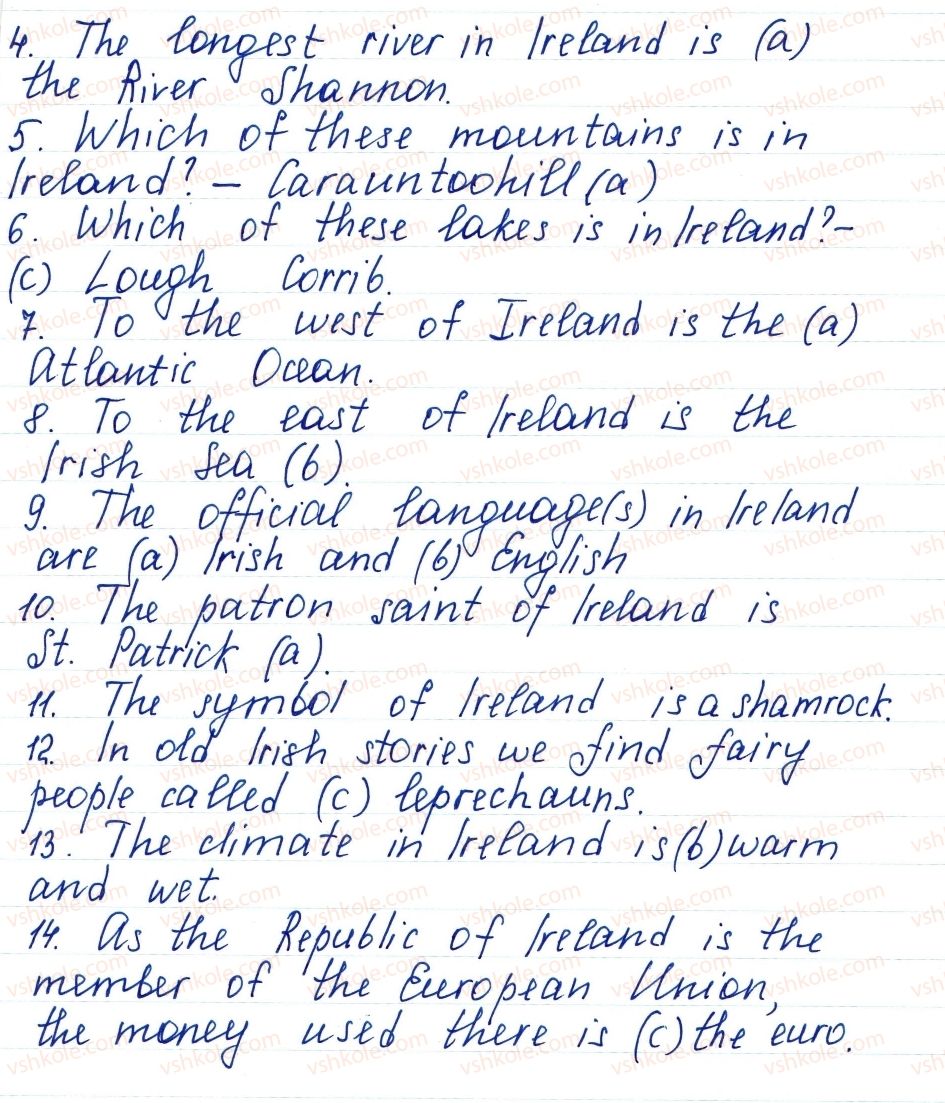 4. The longest river in Ireland is (a)
the River Shannon.
5. Which of these mountains is in
Ireland? – Carauntoohill (a)
6. Which of these lakes is in Ireland? –
(c) Lough Corrib.
7. To the west of Ireland is the (a)
Atlantic Ocean.
8. To the east of Ireland is the
Irish Sea (b).
9. The official language(s) in Ireland
are (a) Irish and (b) English
10. The patron saint of Ireland is
St. Patrick (a).
11. The symbol of Ireland is a shamrock.
12. In old Irish stories we find fairy
people called (c) leprechauns.
13. The climate in Ireland is (b) warm
and wet.
14. As the Republic of Ireland is the
member of the European Union,
the money used there is (c) the euro.
vshkole.com